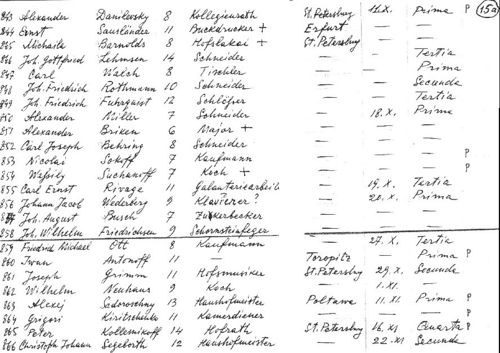 843 Alexander Danilevsky 8 Kollegienrath St. Petersburg 16. X. Prima P (15a)
844 Ernst Sausländer 11 Buckdrucker + Erfurt — —
845 Michaila Barnolds 8 Hofslakai + St. Petersburg — —
846 Joh. Gottfried Lehmsen 14 Schneider — — Tertia
847 Carl Walch 8 Tischler — — Prima
848 Joh. Friedrich Rothmann 10 Schneider — — Secunda
849 Joh. Friedrich Fuhrquist 12 Schlosser — — Tertia
850 Alexander Müller 7 Schneider — 18. X. Prima
851 Alexander Briken 6 Major + — — —
852 Carl Joseph Behring 8 Schneider — — —
853 Nicolai Sokoff 7 Kaufmann — — — P
854 Wassily Suchanoff 7 Koch + — — — P
855 Carl Ernst Rivage 11 Galanteriearbeit — 19. X. Tertia
856 Johann Jacob Wederberg 9 Klavierer ? — 20. X. Prima
857 Joh. August Busch 7 Zuckerbecker — — —
858 Joh. Wilhelm Friedrichsen 9 Schornsteinfeger — — —
859 Friedrich Michael Ott 8 Kaufmann — 27. X. Tertia
860 Iwan Antonoff 11 — Toropitz — Prima P
861 Joseph Grimm 11 Hofsmusiker St. Petersburg 29. X. Secunda
862 Wilhelm Neuhaus 9 Koch — 1. XI. —
863 Alexej Sedoroschny 13 Haushofmeister Poltawa 11. XI. Prima P
864 Grigori 11 Kamerdiener — — — P
865 Peter Kollesnikoff 14 Hofrath St. Petersburg 16. XI Quarta P
866 Christoph Johann Segeborth 12 Haushofmeister — 22. XI Secunda